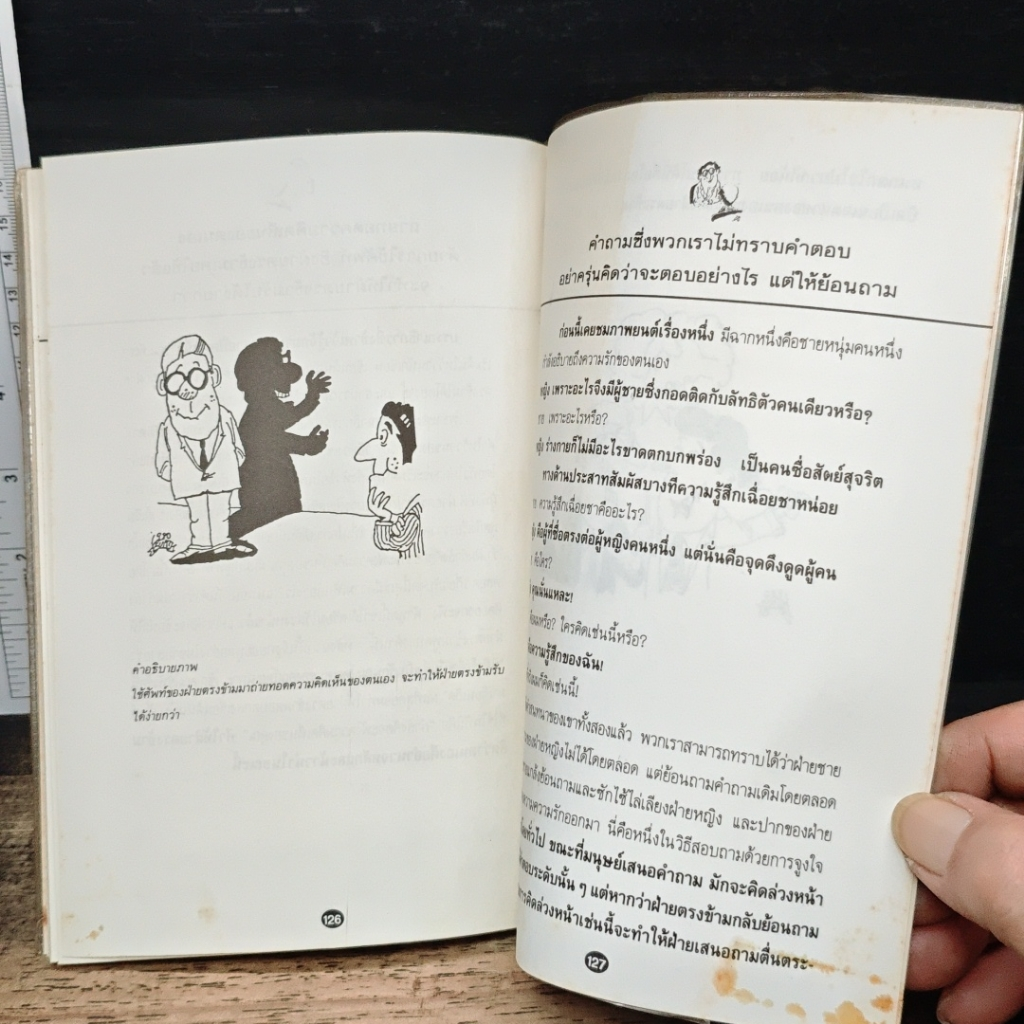 คำอธิบายภาพ
ใช้ศัพท์ของฝ่ายตรงข้ามมาถ่ายทอดความคิดเห็นของตนเอง จะทำให้ฝ่ายตรงข้ามรับ
ได้ง่ายกว่า
126
คำถามซึ่งพวกเราไม่ทราบคำตอบ
อย่าครุ่นคิดว่าจะตอบอย่างไร แต่ให้ย้อนถาม
ก่อนนี้เคยชมภาพยนต์เรื่องหนึ่ง มีฉากหนึ่งคือชายหนุ่มคนหนึ่ง
กำลังอธิบายถึงความรักของตนเอง
หญิง เพราะอะไรจึงมีผู้ชายซึ่งกอดติดกับลัทธิตัวคนเดียวหรือ?
เพราะอะไรหรือ?
หญิง ร่างกายก็ไม่มีอะไรขาดตกบกพร่อง เป็นคนซื่อสัตย์สุจริต
ทางด้านประสาทสัมผัสบางทีความรู้สึกเฉื่อยชาหน่อย
ความรู้สึกเฉื่อยชาคืออะไร?
คือผู้ที่ซื่อตรงต่อผู้หญิงคนหนึ่ง แต่นั่นคือจุดดึงดูดผู้คน
คือใคร?
คุณนั่นแหละ!
ใครคิดเช่นนี้หรือ?
ความรู้สึกของฉัน!
ก็คิดเช่นนี้!
สนทนาของเขาทั้งสองแล้ว พวกเราสามารถทราบได้ว่าฝ่ายชาย
ของฝ่ายหญิงไม่ได้โดยตลอด แต่ย้อนถามคำถามเดิมโดยตลอด
ย้อนถามและซักไซ้ไล่เลียงฝ่ายหญิง และปากของฝ่าย
ความรักออกมา นี่คือหนึ่งในวิธีสอบถามด้วยการจูงใจ
ทั่วไป ขณะที่มนุษย์เสนอคำถาม มักจะคิดล่วงหน้า
ตอบระดับนั้น ๆ แต่หากว่าฝ่ายตรงข้ามกลับย้อนถาม
คิดล่วงหน้าเช่นนี้จะทำให้ฝ่ายเสนอถามตื่นตระ-
127